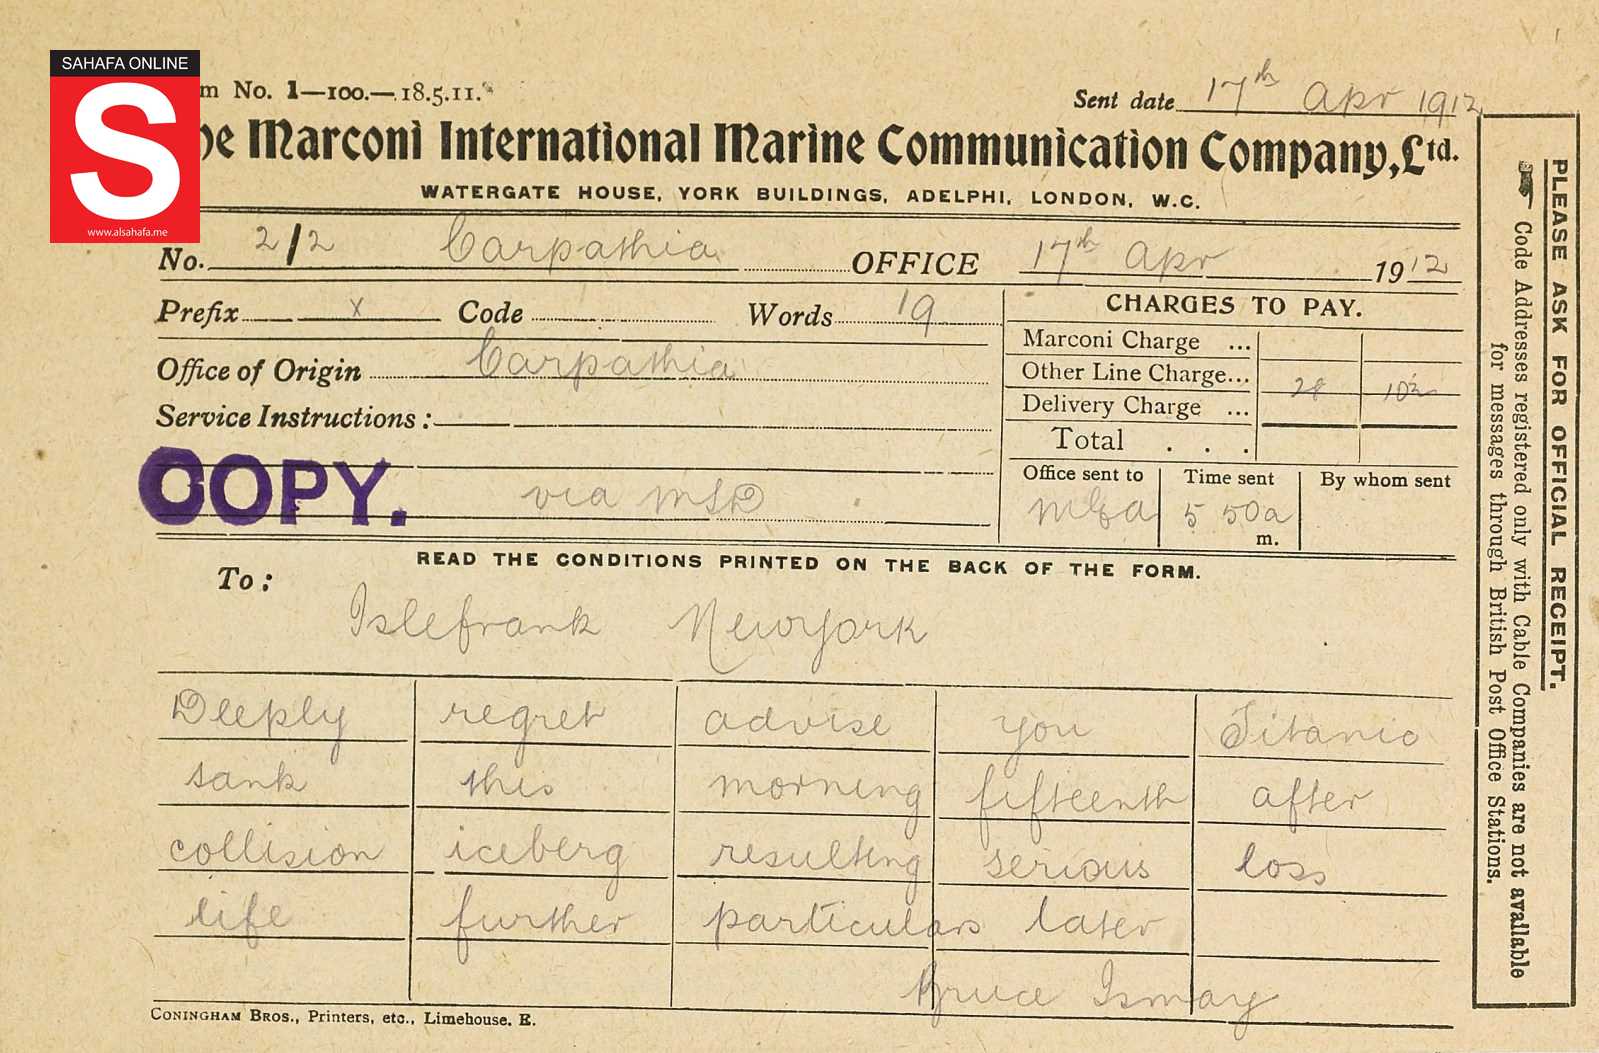 SAHAFA ONLINE
S
www.alsahafa.me
m No. 1—100.—18.5.11.
Sent date 17th Apr 1912
he Marconi International Marine Communication Company, Ltd.
WATERGATE HOUSE, YORK BUILDINGS, ADELPHI, LONDON, W.C.
No. 2/2 Carpathia OFFICE 17th Apr 1912
Prefix x Code Words 19
CHARGES TO PAY.
Marconi Charge ...
Office of Origin Carpathia
Other Line Charge...
Service Instructions :
Delivery Charge ...
Total . . .
COPY.
via MSD
Office sent to
Time sent
By whom sent
5 50a
m.
READ THE CONDITIONS PRINTED ON THE BACK OF THE FORM.
To:
Islefrank Newyork
Deeply regret advise you Titanic
sank this morning fifteenth after
collision iceberg resulting serious loss
life further particulars later
Bruce Ismay
CONINGHAM BROS., Printers, etc., Limehouse. E.
PLEASE ASK FOR OFFICIAL RECEIPT.
Code Addresses registered only with Cable Companies are not available
for messages through British Post Office Stations.